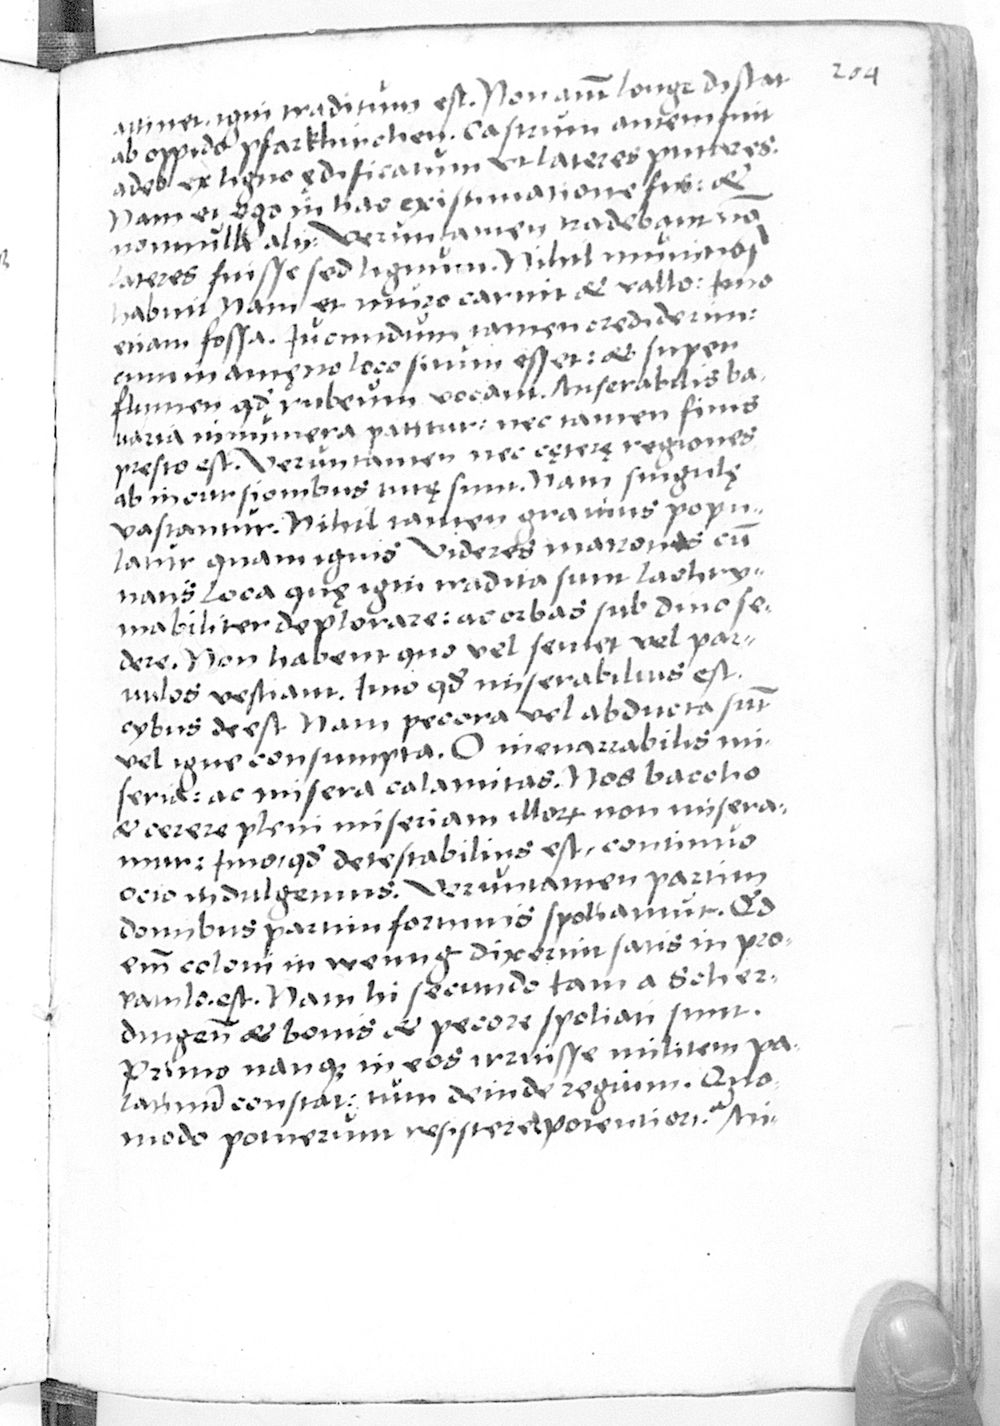 204
attinet, igni traditum est. Non aut͞ longe distat
ab oppido Pfarkhirchen. Castrum autem fuit
adeo ex ligno ędificatum ut lateres putares.
Nam et ego in hac existimatione fui: &
nonnulli alij. Veruntamen tradebant nō
lateres fuisse sed lignum. Nihil
habuit Nam et muro caruit & vallo: Imo
etiam fossa. Iucundum tamen crediderim:
cum in amęno loco situm esset: & super
flumen qd̄ rubeum vocant. Miserabilis ba-
varia innumera patitur: nec tamen finis
presto est. Veruntamen nec cęterę regiones
ab incursionibus tutę sunt. Nam singulę
vastantur. Nihil tamen gravius popu-
latur quam ignis Videres matronas cū
natis loca quę igni tradita sunt lachry-
mabiliter deplorare: ac orbas sub divo se-
dere. Non habent quo vel semet vel par-
vulos vestiant. Imo qd̄ miserabilius est.
cybus deest Nam pecora vel abducta sūt
vel igne consumpta. O inenarrabilis mi-
seria: ac misera calamitas. Nos baccho
& cerere pleni miseriam illorꝝ non misera-
mur: Imo, qd̄ detestabilius est, continuo
ocio indulgemus. Veruntamen partim
domibus partim fortunis spoliamur. Qd
em̄ coloni in weung dixerint satis in pro-
patulo. est. Nam hi secundo tam a Scher-
dingen̄ & bonis & pecore spoliati sunt.
Primo nanqꝫ in eos irruisse militem pa-
latinū constat: tum deinde regium. Quo-
modo potuerunt resistere potentiori? Mi-